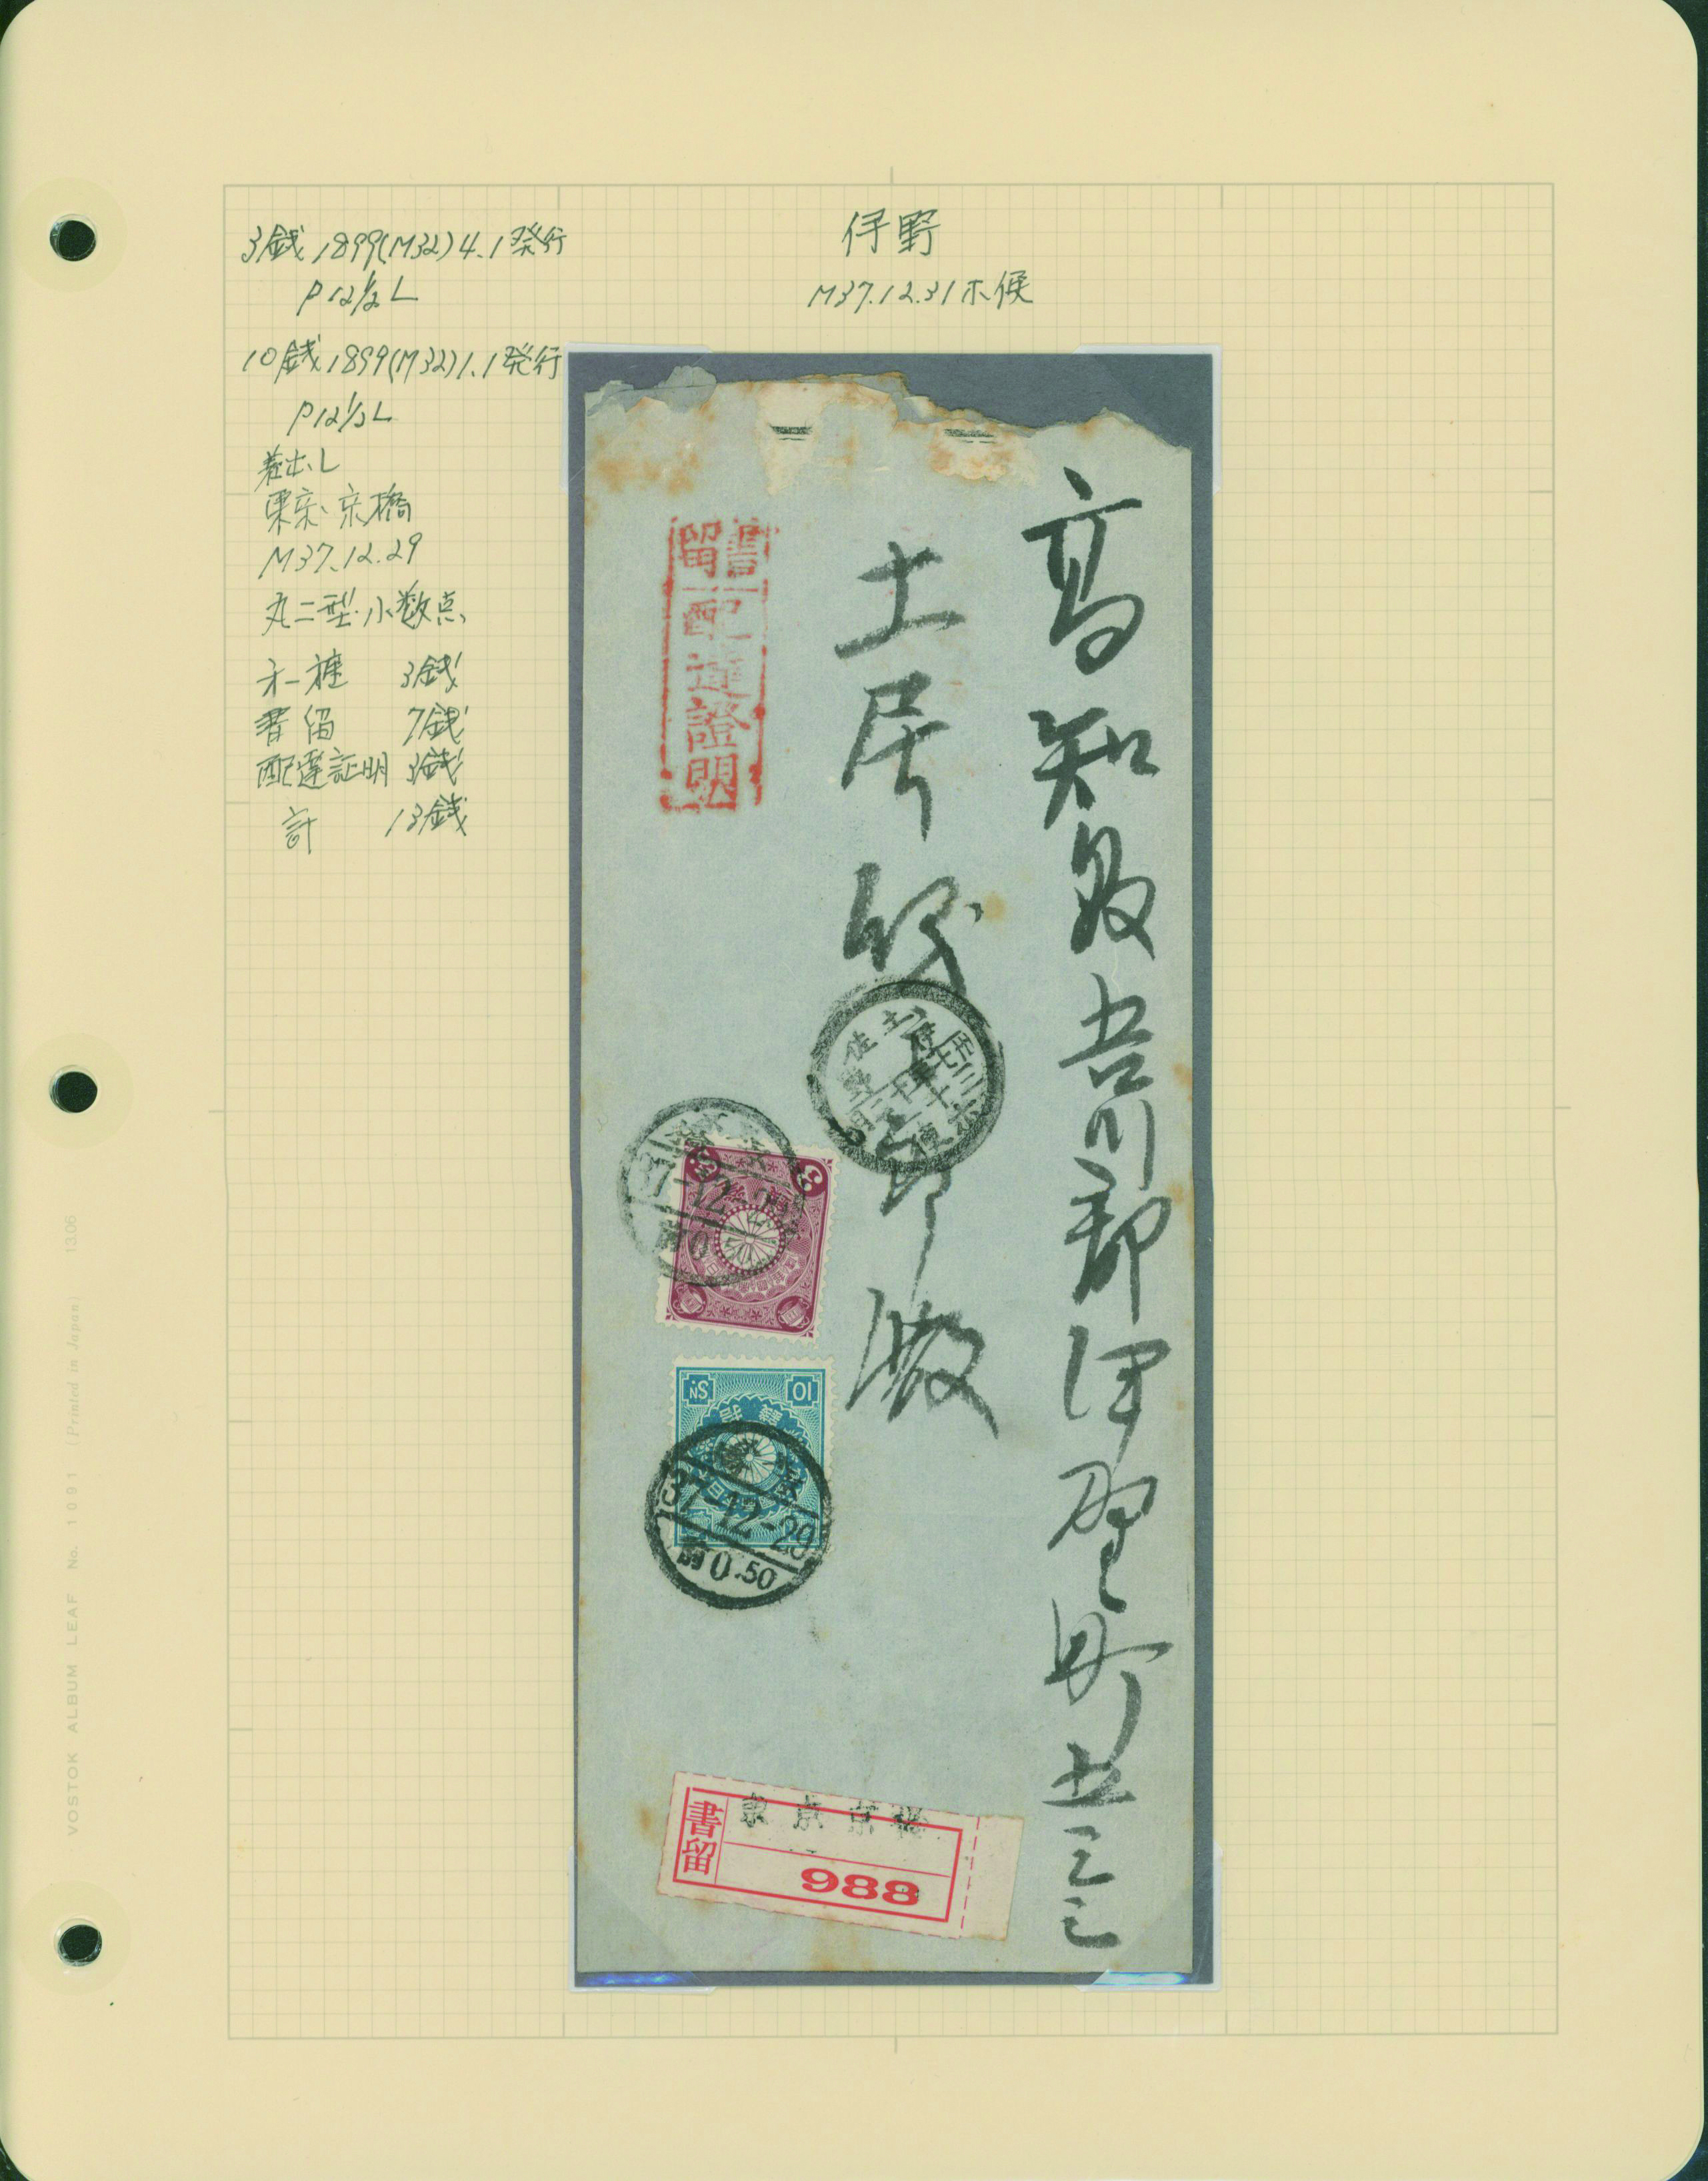 3銭 1899(M32)4.1発行
P12½L
10銭 1899(M32)1.1発行
P12½L
差出し
東京・京橋
M37.12.29
丸二型・小数点
才一種 3銭
書留 7銭
配達証明 3銭
計 13銭
伊野
M37.12.31ホ便
高知縣吾川郡伊野町
土居
郎殿
書留
配達證明
土佐
37-12-29
前0.50
3
10 SN
37-12-29
前0.50
書留
988
VOSTOK ALBUM LEAF No. 1091 (Printed in Japan) 13.06